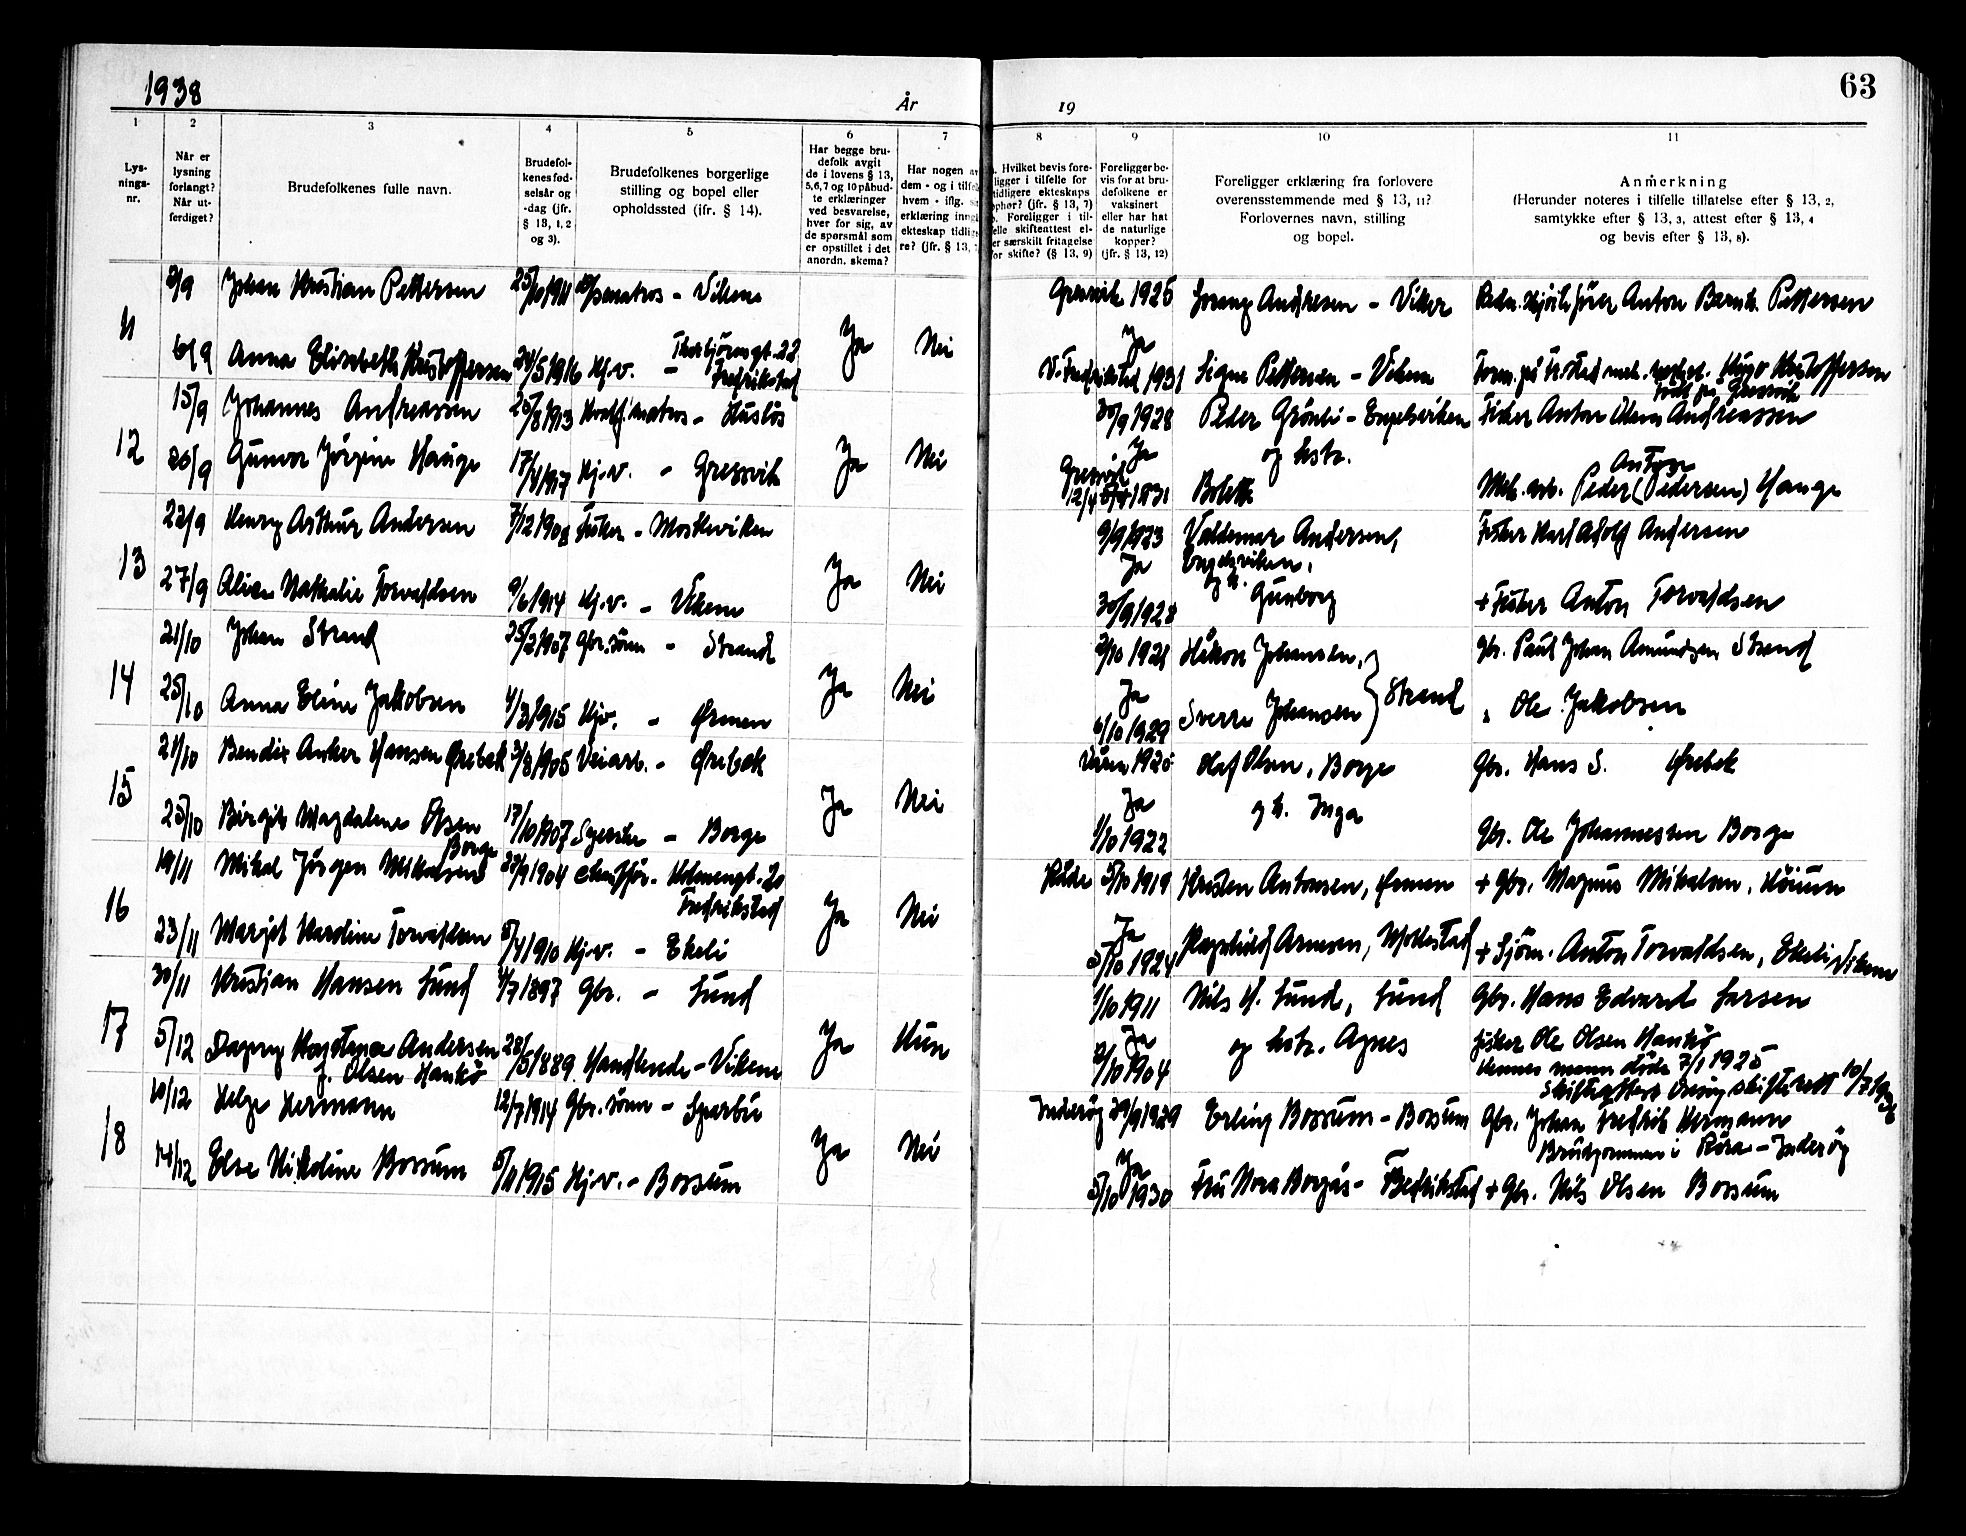 1938
År
19
63
1 2 3 4 5 6 7 8 9 10 11
Lysningsnr.
Når er lysning forlangt? Når utferdiget?
Brudefolkenes fulle navn.
Brudefolkenes fødselsår og -dag (jfr. § 13, 1, 2 og 3).
Brudefolkenes borgerlige stilling og bopel eller opholdssted (ifr. § 14).
Har begge brudefolk avgit de i lovens § 13, 5,6,7 og 10 påbudte erklæringer ved besvarelse, hver for sig, av de spørsmål som er opstillet i det anordn. skema?
Har nogen av dem - og i tilfel hvem - iflg. erklæring inngt ekteskap tidlig re? (jfr. § 13,
Hvilket bevis foreligger i tilfelle for tidligere ekteskaps ophør? (jfr. § 13, 7)
Foreligger i tilfelle skifteattest eller særskilt fritagelse for skifte? (§ 13, 9)
Foreligger bevis for at brudefolkene er vaksinert eller har hat de naturlige kopper? (jfr. § 13, 12)
Foreligger erklæring fra forlovere overensstemmende med § 13, 11? Forlovernes navn, stilling og bopel.
Anmerkning
(Herunder noteres i tilfelle tillatelse efter § 13, 2, samtykke efter § 13, 3, attest efter § 13, 4 og bevis efter § 13, 8).
2/9 Johan Kristian Pettersen 25/10 1911 matros - Vikene Gressvik 1926 Andresen - Viker Anton Bernh. Pettersen
11 Ja Nei Ja
6/9 Anna Elisabeth Kristoffersen 24/5 1916 Hj.v. - Thorbjörnsgt. 22 Fredrikstad V. Fredrikstad 1931 Signe Pettersen - Vikene Form. på Kristoffersen
født på Gressvik
15/9 Johannes Andreassen 25/8 1913 matros - Huslös 30/9 1928 Peder Grönli - Engelsviken Fisker Anton Andreassen
12 Ja Nei Ja og hstr.
20/9 Gunvor Jörgine Hauge 17/4 1917 Hj.v. - Gressvik Gressvik 12/4 1931 Bolette Peder (Pedersen) Hauge
22/9 Henry Arthur Andersen 7/12 1908 Fisker - Moskeviken 9/9 1923 Valdemar Andersen, Fisker Karl Adolf Andersen
13 Ja Nei Ja Engelsviken,
27/9 Nathalie Torvaldsen 9/6 1914 Hj.v. - Vikene 30/9 1928 og h. Gunborg + Fisker Anton Torvaldsen
21/10 Johan Strand 25/2 1907 Gbr.sönn - Strand 2/10 1921 Håkon Johansen, Gbr. Paul Johan Amundsen Strand
14 Ja Nei Ja Strand
25/10 Anna Eline Jakobsen 4/3 1915 Hjv. - Ørmen 6/10 1929 Sverre Johansen " Ole Jakobsen
21/10 Bendix Anker Hansen Ørebek 3/8 1905 Veiarb. - Ørebek 1920 Olaf Olsen, Borge Gbr. Hans S. Ørebek
15 Ja Nei Ja
25/10 Birgit Magdalene Olsen Borge 17/10 1907 Syerske - Borge 1/10 1922 og h. Inga Gbr. Ole Johannessen Borge
19/11 Mikal Jörgen Mikalsen 1904 Chafför. Holmengt. 20 Fredrikstad Råde 5/10 1919 Kristen Antonsen, Ørmen + Gbr. Magnus Mikalsen,
16 Ja Nei Ja
23/11 Margit Kardine Torvaldsen 5/4 1910 Hj.v. - Ekeli 5/10 1924 Ragnhild Arnesen, + Sjöm. Anton Torvaldsen, Ekeli Vikene
30/11 Kristian Hansen Lund 4/7 1897 Gbr. - Lund 1/10 1911 Nils H. Lund, Lund Gbr. Hans Edvard Larsen
17 Ja Hun Ja og hstr. Agnes Fisker Ole Olsen Hankö
5/12 Dagny Andersen f. Olsen Hankö 28/5 1889 Handlende - Vikene 2/10 1904 Hennes mann döde 7/1 1925
Skifteattest Onsøy skifterett 10/7 1936
10/12 Helge Hermann 12/7 1914 Gbr.sönn - Sparbu Inderöy 29/9 1929 Erling Bossum - Bossum Gbr. Johan Fredrik Hermann
18 Ja Nei Ja Brudgommen i Röra - Inderöy
14/12 Else Nikoline Bossum 5/11 1915 Hj.v. - Bossum 5/10 1930 Fru Nora Borgås - Fredrikstad + Gbr. Nils Olsen Bossum